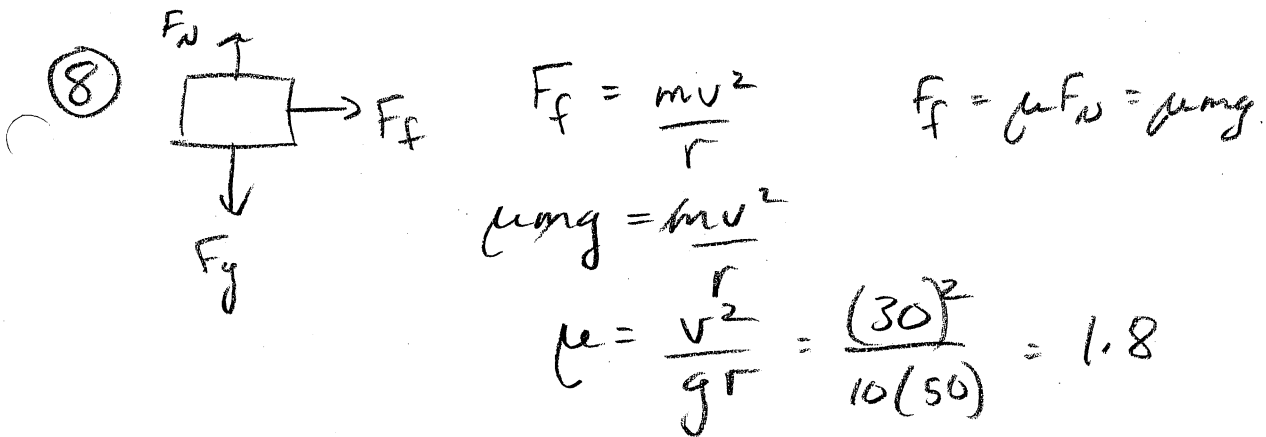 ⑧
F_N
F_f
F_g
F_f = mv²/r
F_f = μF_N = μmg.
μmg = mv²/r
μ = v²/gr = (30)²/10(50) = 1.8